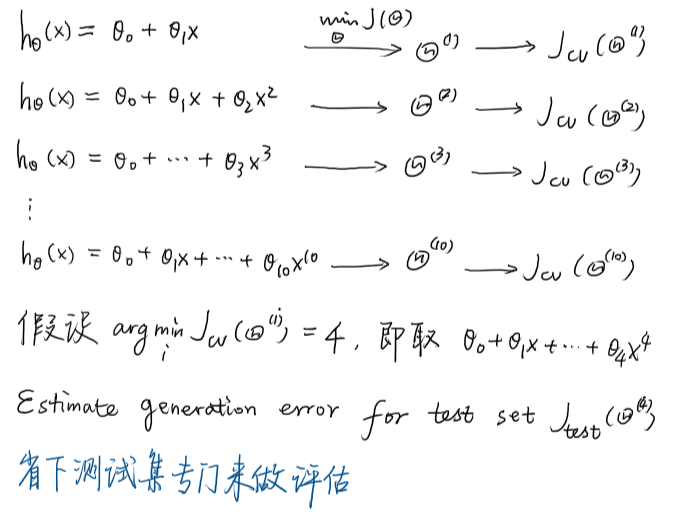 hθ(x) = θ₀ + θ₁x  min_Θ J(Θ) → Θ⁽¹⁾ → Jcv(Θ⁽¹⁾)
hθ(x) = θ₀ + θ₁x + θ₂x² → Θ⁽²⁾ → Jcv(Θ⁽²⁾)
hθ(x) = θ₀ + ⋯ + θ₃x³ → Θ⁽³⁾ → Jcv(Θ⁽³⁾)
⋮
hθ(x) = θ₀ + θ₁x + ⋯ + θ₁₀x¹⁰ → Θ⁽¹⁰⁾ → Jcv(Θ⁽¹⁰⁾)
假设 arg min_i Jcv(Θ⁽ⁱ⁾) = 4, 即取 θ₀+θ₁x+⋯+θ₄x⁴
Estimate generation error for test set J_test(Θ⁽⁴⁾)
省下测试集专门来做评估